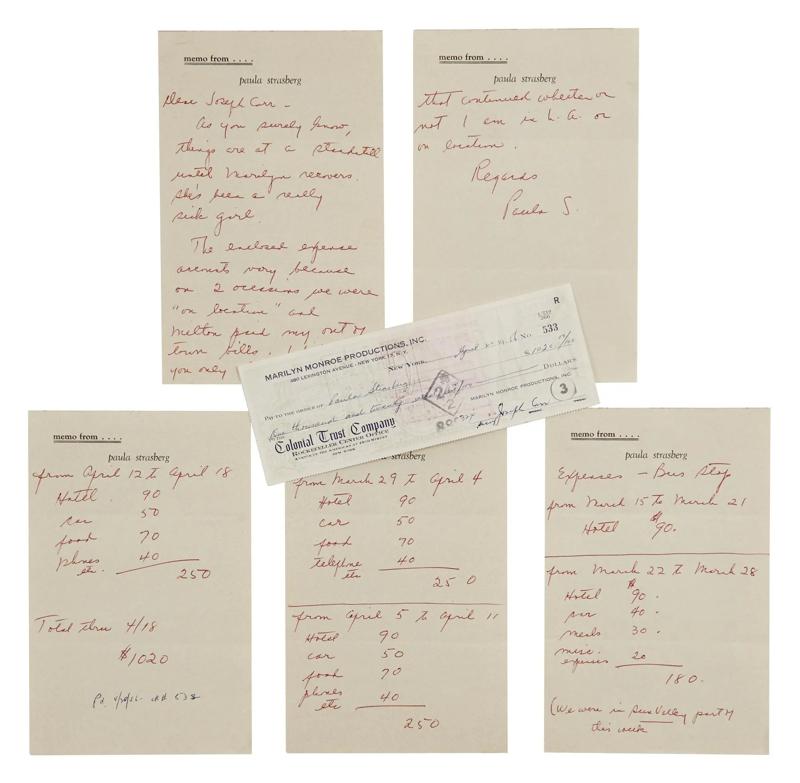 memo from . . . .
paula strasberg
Dear Joseph Carr –
As you surely know,
things are at a standstill
until Marilyn recovers.
She's been a really
sick girl.
The enclosed expense
accounts vary because
on 2 occasions we were
"on location" and
Milton paid my out of
town bills.
you only
memo from . . . .
paula strasberg
that continued whether or
not I am in L.A. or
on location.
Regards
Paula S.
R
MARILYN MONROE PRODUCTIONS, INC.
480 LEXINGTON AVENUE - NEW YORK 17, N.Y.
NEW YORK,
April
No. 533
PAY TO THE ORDER OF Paula Strasberg
$1020
One thousand and twenty
DOLLARS
THE Colonial Trust Company
ROCKEFELLER CENTER OFFICE
AVENUE OF THE AMERICAS AT 48TH STREET
NEW YORK
MARILYN MONROE PRODUCTIONS, INC.
Joseph Carr
3
memo from . . . .
paula strasberg
from April 12 to April 18
Hotel. 90
car 50
food 70
phones 40
etc.
250
Total thru 4/18
$1020
Pd.
strasberg
from March 29 to April 4
Hotel 90
car 50
food 70
telephone 40
etc
250
from April 5 to April 11
Hotel 90
car 50
food 70
phones 40
etc
250
memo from . . . .
paula strasberg
Expenses – Bus Stop
from March 15 to March 21
Hotel $90.
from March 22 to March 28
Hotel $90.
car 40.
meals 30.
misc. expenses 20
180.
(We were in Sun Valley part of
this week